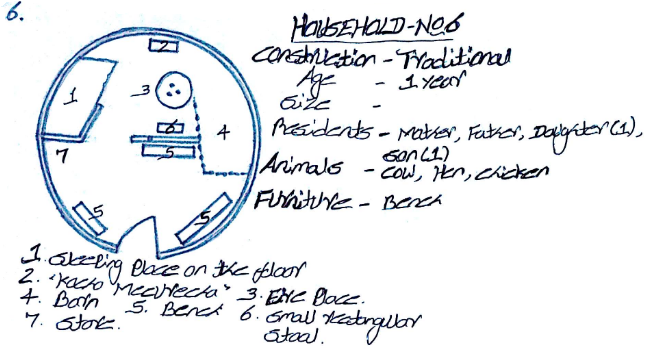 6.
HOUSEHOLD-NO.6
Construction - Traditional
Age - 1 year
Size -
Residents - Mother, Father, Daughter (1),
Son (1)
Animals - Cow, Hen, Chicken
Furniture - Bench
2
1
3
6
4
7
5
5
5
1. Sleeping Place on the floor
2.
4. Barn 3. Fire Place.
5. Bench 6. Small rectangular
7. Store. Stool.